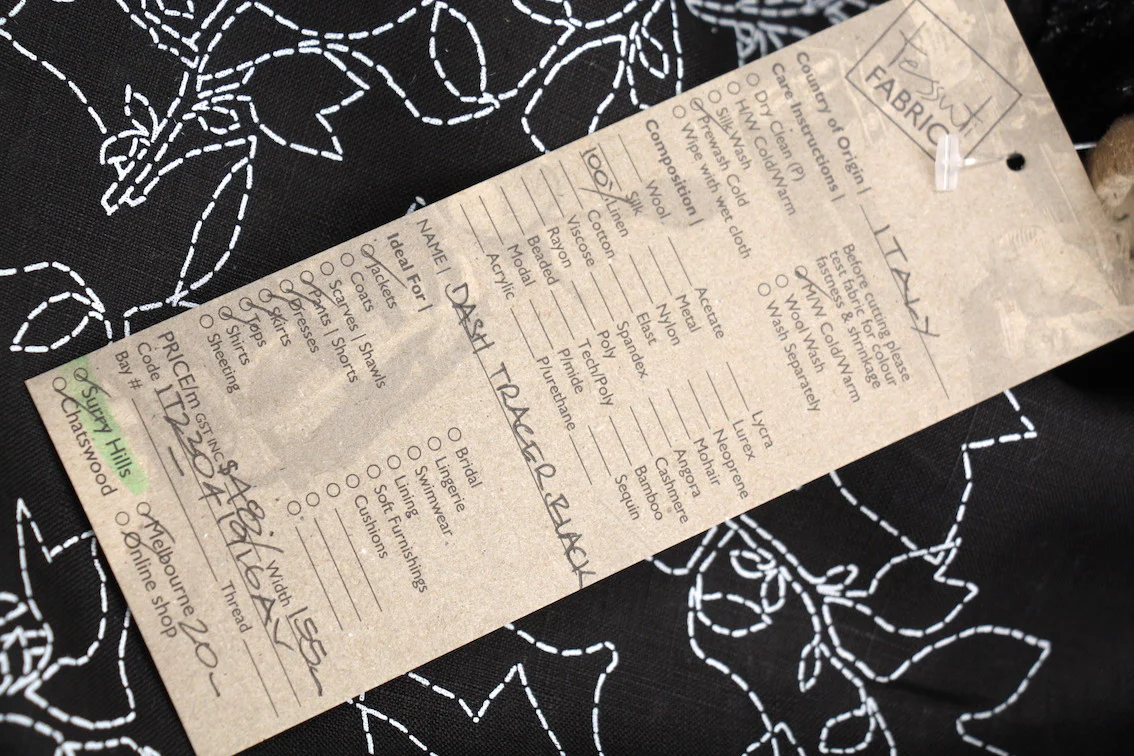 Tessuti
FABRICS
Country of Origin | ITALY
Care Instructions |
Before cutting please
test fabric for colour
fastness & shrinkage
Dry Clean (P)
H/W Cold/Warm
Silk Wash
Prewash Cold
Wipe with wet cloth
M/W Cold/Warm
Wool Wash
Wash Separately
Composition |
Wool
Silk
100% Linen
Cotton
Viscose
Rayon
Beaded
Modal
Acrylic
Acetate
Metal
Nylon
Elast
Spandex
Poly
Tech/Poly
P/mide
P/urethane
Lycra
Lurex
Neoprene
Mohair
Angora
Cashmere
Bamboo
Sequin
NAME | DASH TRACER BLACK
Ideal For |
Jackets
Coats
Scarves | Shawls
Pants | Shorts
Dresses
Skirts
Tops
Shirts
Sheeting
Bridal
Lingerie
Swimwear
Lining
Soft Furnishings
Cushions
PRICE/m GST INC $ Width 155
Code
Bay # Thread
Surry Hills Melbourne 20
Chatswood Online shop